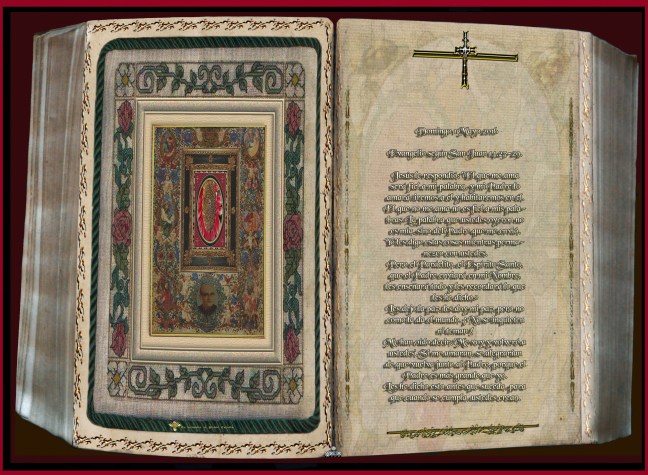 Domingo 1 Mayo 2016
Evangelio según San Juan 14,23-29.
Jesús le respondió: "El que me ama
será fiel a mi palabra, y mi Padre lo
amará; iremos a él y habitaremos en él.
El que no me ama no es fiel a mis pala-
bras. La palabra que ustedes oyeron no
es mía, sino del Padre que me envió.
Yo les digo estas cosas mientras perma-
nezco con ustedes.
Pero el Paráclito, el Espíritu Santo,
que el Padre enviará en mi Nombre,
les enseñará todo y les recordará lo que
les he dicho."
Les dejo la paz, les doy mi paz, pero no
como la da el mundo. ¡No se inquieten
ni teman!
Me han oído decir: 'Me voy y volveré a
ustedes'. Si me amaran, se alegrarían
de que vuelva junto al Padre, porque el
Padre es más grande que yo.
Les he dicho esto antes que suceda, para
que cuando se cumpla, ustedes crean.